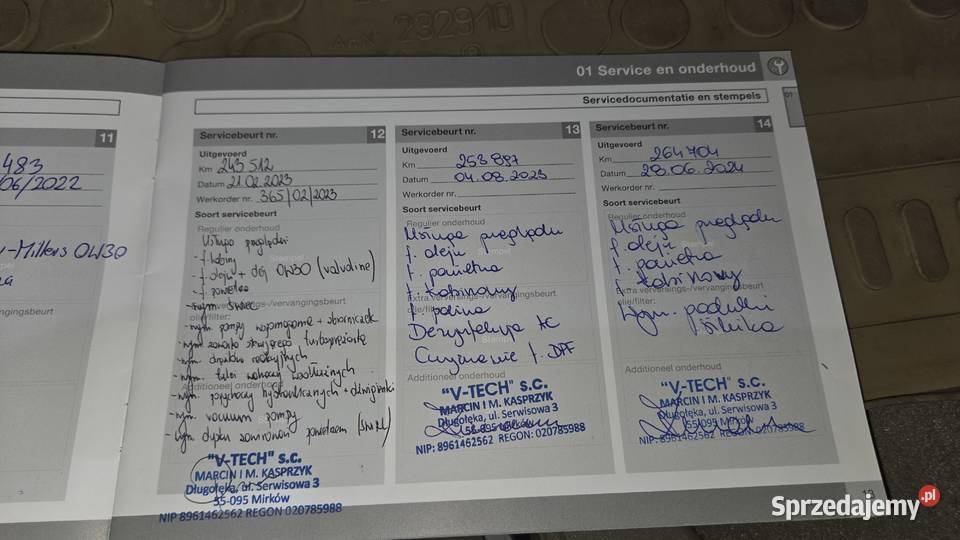 292910
01 Service en onderhoud
01
Servicedocumentatie en stempels
11
483
/06/2022
-Millers 0W30
Servicebeurt nr. 12
Uitgevoerd
Km 243 512
Datum 21.02.2023
Werkorder nr. 365/02/2023
Soort servicebeurt
Regulier onderhoud
Usługa przeglądu
- f. kabiny
- f. oleju + olej 0W30 (valvoline)
- f. powietrza
- wym. świec
Extra verversings-/vervangingsbeurt
olie/filter:
- wym. pompy wspomagania + zbiorniczek
- wym. zaworu sterującego turbosprężarką
- wym. drążków reakcyjnych
- wym. tulei wahaczy wzdłużnych
Additioneel onderhoud
- wym. popychaczy hydraulicznych + dźwigienki
- wym. vacuum pompy
- wym.
"V-TECH" s.c.
MARCIN I M. KASPRZYK
Długołęka, ul. Serwisowa 3
55-095 Mirków
NIP 8961462562 REGON 020785988
Servicebeurt nr. 13
Uitgevoerd
Km 253 897
Datum 04.08.2023
Werkorder nr.
Soort servicebeurt
Regulier onderhoud
Usługa przeglądu
f. oleju
f. powietrza
f. kabinowy
Extra verversings-/vervangingsbeurt
olie/filter:
f. paliwa
Dezynfekcja AC
Stempel
Czyszczenie f. DPF
Additioneel onderhoud
"V-TECH" s.c.
MARCIN I M. KASPRZYK
Długołęka, ul. Serwisowa 3
55-095 Mirków
NIP: 8961462562 REGON: 020785988
Servicebeurt nr. 14
Uitgevoerd
Km 264 704
Datum 28.06.2024
Werkorder nr.
Soort servicebeurt
Regulier onderhoud
Usługa przeglądu
f. oleju
f. powietrza
f. kabinowy
Extra verversings-/vervangingsbeurt
olie/filter:
Wym. poduszki
silnika
Additioneel onderhoud
"V-TECH" s.c.
MARCIN I M. KASPRZYK
Długołęka, ul. Serwisowa 3
55-095 Mirków
NIP: 8961462562 REGON 020785988
Sprzedajemy.pl